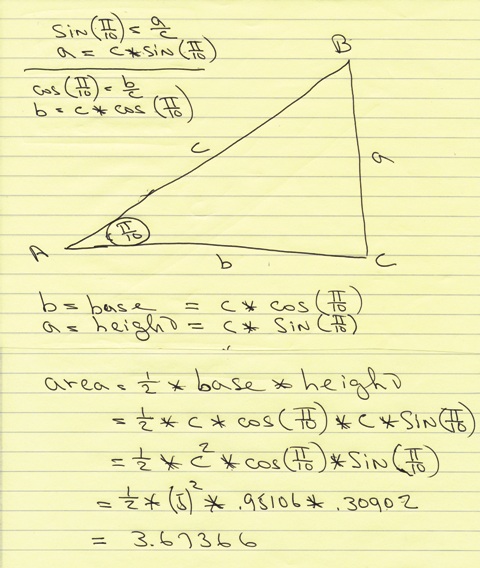 sin(π/10) = a/c
a = c*sin(π/10)
cos(π/10) = b/c
b = c* cos(π/10)
B
c
a
π/10
A
b
C
b = base = c* cos(π/10)
a = height = c* sin(π/10)
area = 1/2 * base * height
= 1/2 * c * cos(π/10) * c * sin(π/10)
= 1/2 * c² * cos(π/10) * sin(π/10)
= 1/2 * (5)² * .95106 * .30902
= 3.67366